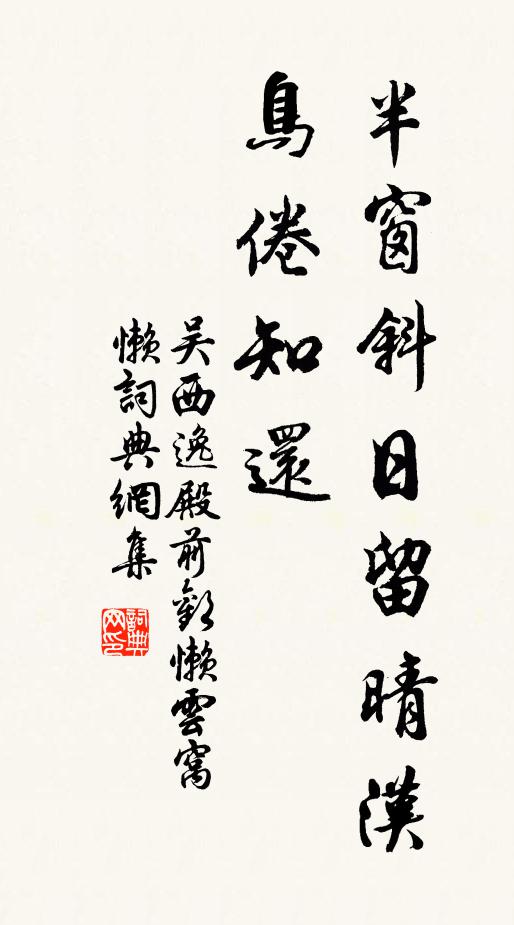 半窗斜日留晴漢
鳥倦知還
吴西逸殿前歡懶雲窩
懶詞典網集
詞典
网印